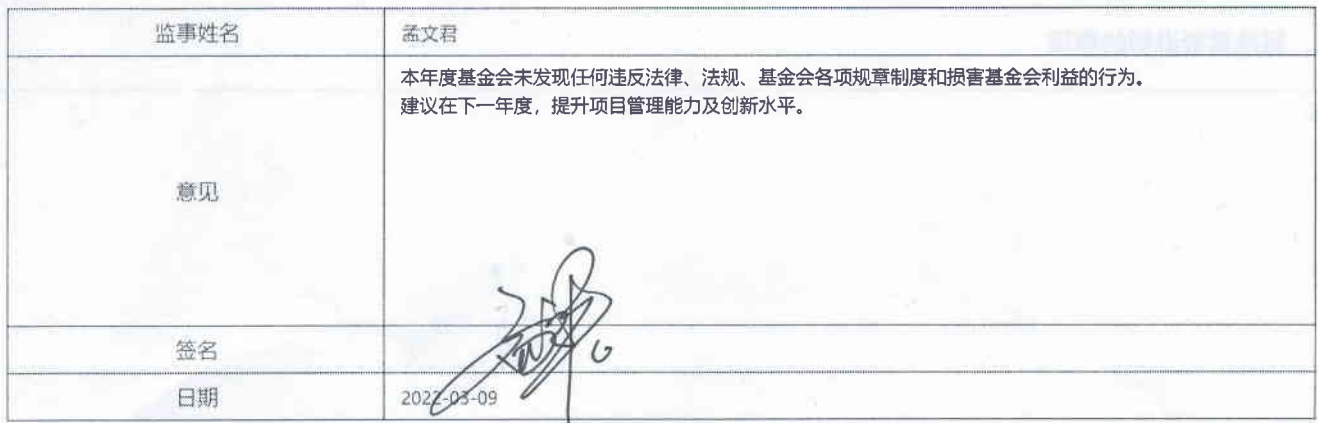 监事姓名 孟文君
意见 本年度基金会未发现任何违反法律、法规、基金会各项规章制度和损害基金会利益的行为。
建议在下一年度，提升项目管理能力及创新水平。
签名
日期 2022-03-09